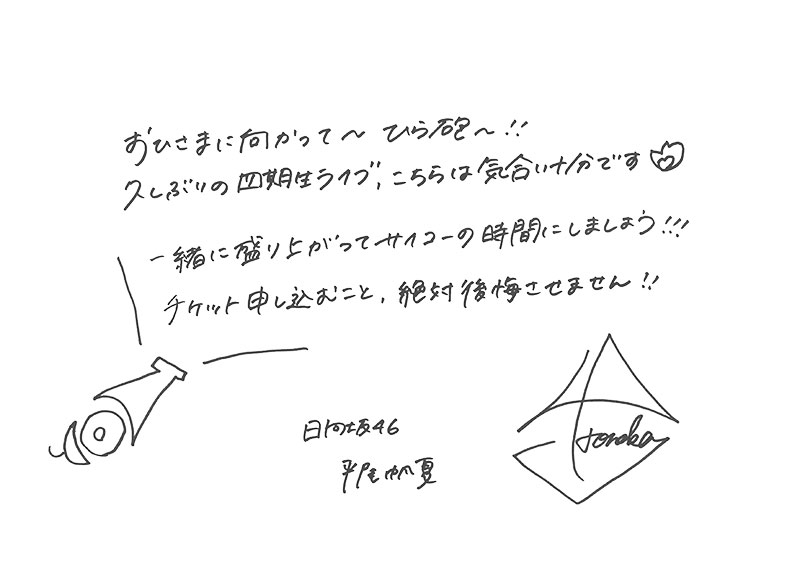 おひさまに向かって〜 ひら砲〜!!
久しぶりの四期生ライブ、こちらは気合い十分です
一緒に盛り上がってサイコーの時間にしましょう!!!
チケット申し込むこと、絶対後悔させません!!
日向坂46
平尾帆夏
Honoka